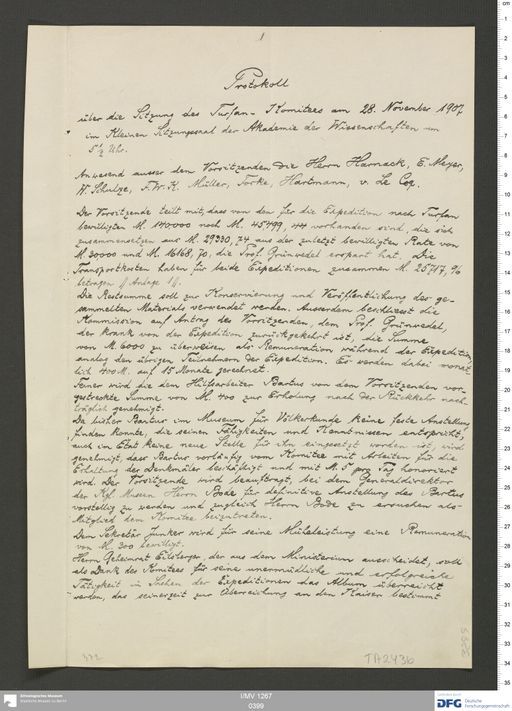 1
Protokoll
über die Sitzung des Turfan-Komitees am 28. November 1907
im Kleinen Sitzungssaal der Akademie der Wissenschaften um
5½ Uhr.
Anwesend ausser dem Vorsitzenden die Herrn Harnack, E. Meyer,
W. Schulze, F.W.K. Müller, Forke, Hartmann, v. Le Coq.
Der Vorsitzende teilt mit, dass von den für die Expedition nach Turfan
bewilligten M. 140000 noch M. 45499,44 vorhanden sind, die sich
zusammensetzen aus M. 29330,74 aus der zuletzt bewilligten Rate von
M. 30000 und M. 16168,70, die Prof. Grünwedel erspart hat. Die
Transportkosten haben für beide Expeditionen zusammen M. 25717,96
betragen (Anlage 1).
Die Restsumme soll zur Konservierung und Veröffentlichung des ge-
sammelten Materials verwendet werden. Ausserdem beschliesst die
Kommission auf Antrag des Vorsitzenden, dem Prof. Grünwedel,
der krank von der Expedition zurückgekehrt ist, die Summe
von M. 6000 zu überweisen als Remuneration während der Expedition
analog den übrigen Teilnehmern der Expedition. Es werden dabei monat-
lich 400 M. auf 15 Monate gerechnet.
Ferner wird die dem Hilfsarbeiter Bartus von dem Vorsitzenden vor-
gestreckte Summe von M. 400 zur Erholung nach der Rückkehr nach-
träglich genehmigt.
Da bisher Bartus im Museum für Völkerkunde keine feste Anstellung
finden konnte, die seinen Fähigkeiten und Kenntnissen entspricht,
auch im Etat keine neue Stelle für ihn eingesetzt worden ist, wird
genehmigt, dass Bartus vorläufig vom Komitee mit Arbeiten für die
Erhaltung der Denkmäler beschäftigt und mit M. 5 pro Tag honoriert
wird. Der Vorsitzende wird beauftragt, bei dem Generaldirektor
der Kgl. Museen Herrn Bode für definitive Anstellung des Bartus
vorstellig zu werden und zugleich Herrn Bode zu ersuchen als
Mitglied dem Komitee beizutreten.
Dem Sekretär Junker wird für seine Müheleistung eine Remuneration
von M. 300 bewilligt.
Herrn Geheimrat Eilsberger, der aus dem Ministerium ausscheidet, soll
als Dank des Komitees für seine unermüdliche und erfolgreiche
Tätigkeit in Sachen der Expeditionen das Album überreicht
werden, das seinerzeit zur Überreichung an den Kaiser bestimmt
TA 2436
Ethnologisches Museum
Staatliche Museen zu Berlin
I/MV 1267
0399
DFG Deutsche
Forschungsgemeinschaft